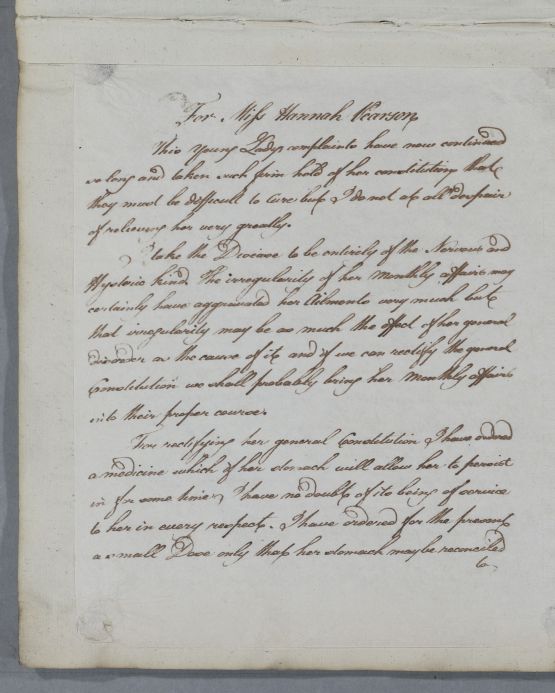 For Miss Hannah Pearson
This young Ladys complaints have now continued
so long and taken such firm hold of her constitution that
they must be difficult to cure but I do not at all despair
of relieving her very greatly.
I take the Disease to be entirely of the Nervous and
Hysteric kind. The irregularity of her monthly affairs may
certainly have aggravated her Ailments very much but
that irregularity may be as much the effect of her general
disorder as the cause of it and if we can rectify the general
Constitution we shall probably bring her monthly affairs
into their proper course.
For rectifying her general Constitution I have ordered
a medicine which if her stomach will allow her to persist
in for some time, I have no doubt of its being of service
to her in every respect. I have ordered for the present
a small Dose only that her stomach may be reconciled
to